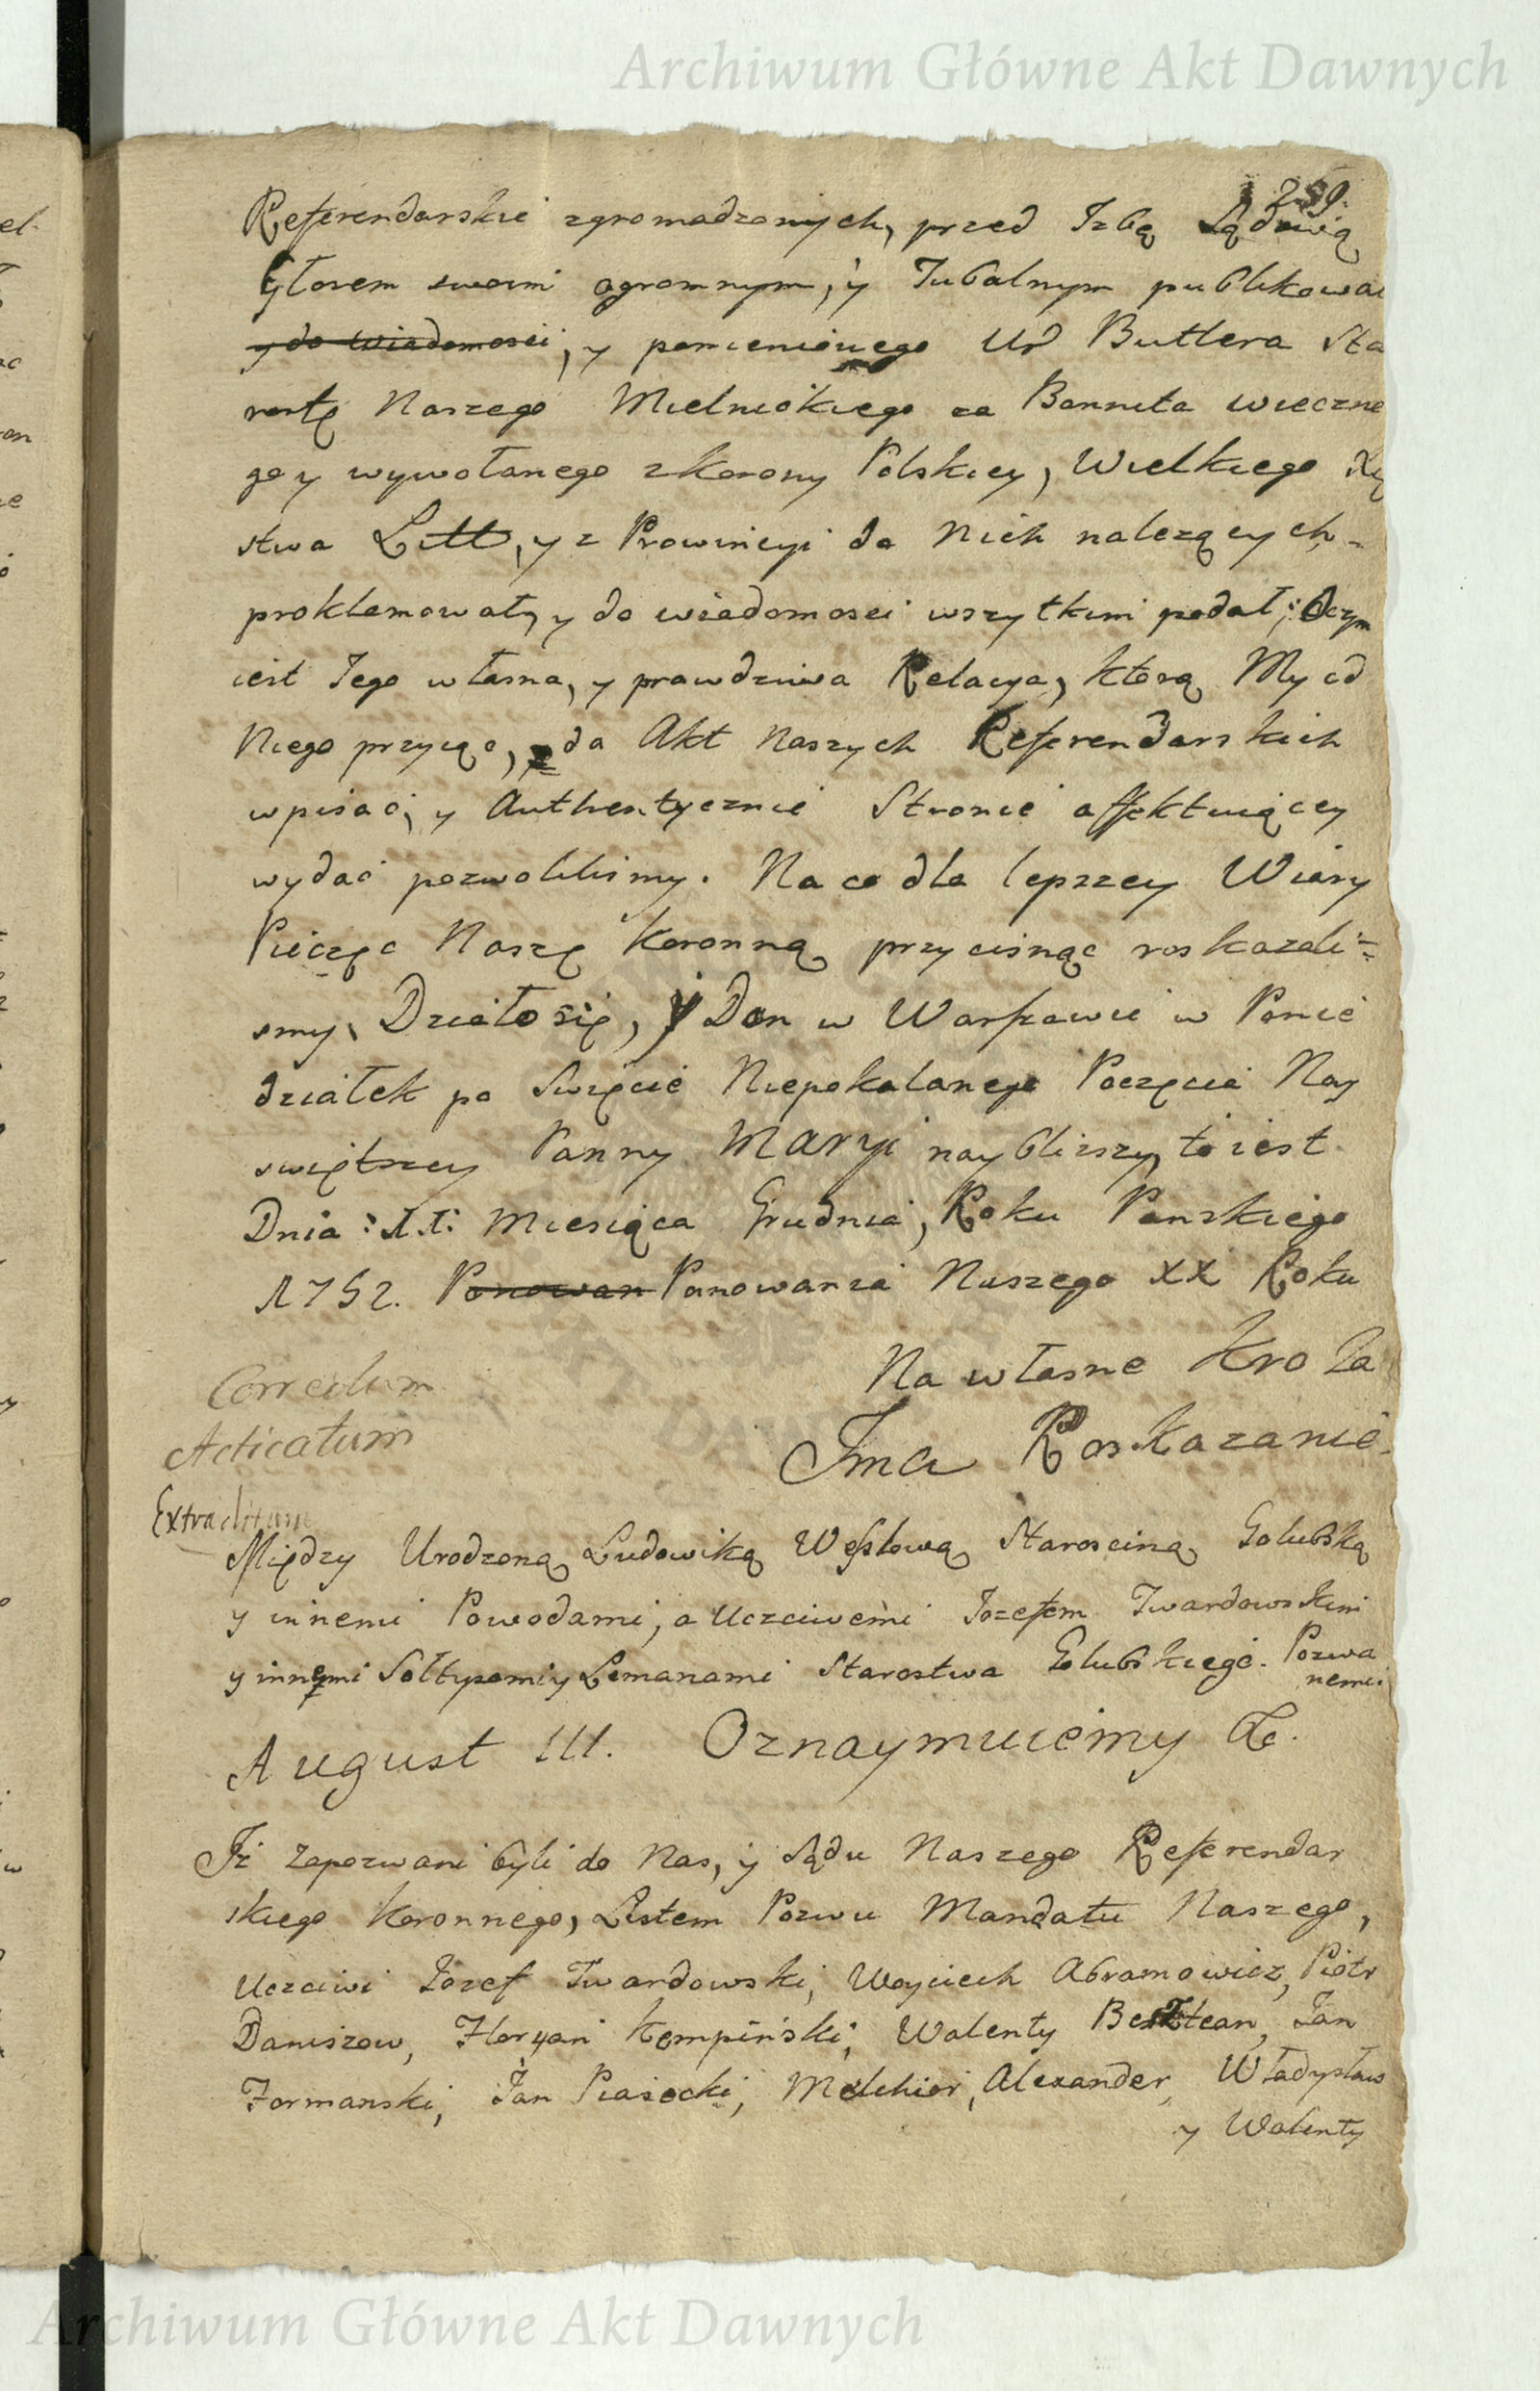 Archiwum Główne Akt Dawnych
259.
Referendarskie zgromadzonych, przed Izbą Sądową
Głosem swoim ogromnym, y Tubalnym publikował
y do wiadomosci, y pomienionego Ur Buttlera Sta
rostę Naszego Mielnickiego za Bannita wieczne
go y wywołanego z Korony Polskiey, Wielkiego Xię
stwa Litt, y z Prowincyi do Nich należących
proklamował, y do wiadomosci wszytkim podał; Oczym
iest Jego własna, y prawdziwa Relacya, ktorą My od
Niego przyiąc, do Akt Naszych Referendarskich
wpisać, y Authentycznie Stronie affektuiącey
wydać pozwolilismy. Na co dla lepszey Wiary
Pieczęc Naszę Koronną przycisnąc roskazali=
smy, Działo się, y Dan w Warszawie w Ponie
działek po Swięcie Niepokalanego Poczęcia Nay
swiętszey Panny Maryi naybliższy, to iest
Dnia : 11: Miesiąca Grudnia, Roku Panskiego
1752. Panowan Panowania Naszego XX Roku
Na własne Krola
Correctum
Jmci Roskazanie
Acticatum
Extraditum
Między Urodzoną Ludowiką Wesslową Starosciną Golubską
y innemi Powodami, a Uczciwemi Jozefem Twardowskim
y innemi Sołtysami y Lemanami Starostwa Golubskiego. Pozwa
nemi.
August III. Oznaymuiemy &c.
Jż Zapozwani byli do Nas, y Sądu Naszego Referendar
skiego Koronnego, Listem Pozwu Mandatu Naszego,
Uczciwi Jozef Twardowski, Woyciech Abramowicz, Piotr
Daniszow, Floryan Kempinski, Walenty Jan
Formanski, Jan Piasecki, Melchior, Alexander, Władysław
y Walenty
Archiwum Główne Akt Dawnych